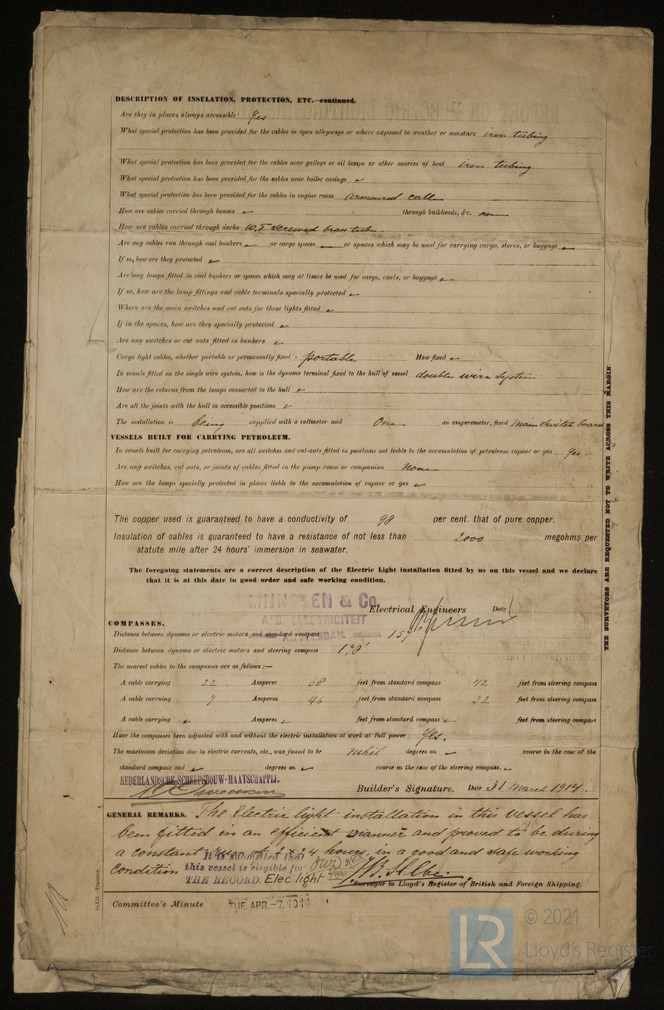 DESCRIPTION OF INSULATION, PROTECTION, ETC.—continued.
Are they in places always accessible Yes
What special protection has been provided for the cables in open alleyways or where exposed to weather or moisture iron tubing
What special protection has been provided for the cables near galleys or oil lamps or other sources of heat iron tubing
What special protection has been provided for the cables near boiler casings
What special protection has been provided for the cables in engine room armoured cable
How are cables carried through beams through bulkheads, &c.
How are cables carried through decks W.T. screwed brass tube.
Are any cables run through coal bunkers or cargo spaces or spaces which may be used for carrying cargo, stores, or baggage
If so, how are they protected
Are any lamps fitted in coal bunkers or spaces which may at times be used for cargo, coals, or baggage
If so, how are the lamp fittings and cable terminals specially protected
Where are the main switches and cut outs for these lights fitted
If in the spaces, how are they specially protected
Are any switches or cut outs fitted in bunkers
Cargo light cables, whether portable or permanently fixed portable How fixed
In vessels fitted on the single wire system, how is the dynamo terminal fixed to the hull of vessel double wire system
How are the returns from the lamps connected to the hull
Are all the joints with the hull in accessible positions
The installation is being supplied with a voltmeter and One an amperemeter, fixed Main Switch board
VESSELS BUILT FOR CARRYING PETROLEUM.
In vessels built for carrying petroleum, are all switches and cut-outs fitted in positions not liable to the accumulation of petroleum vapour or gas Yes.
Are any switches, cut outs, or joints of cables fitted in the pump room or companion None
How are the lamps specially protected in places liable to the accumulation of vapour or gas
The copper used is guaranteed to have a conductivity of 98 per cent. that of pure copper.
Insulation of cables is guaranteed to have a resistance of not less than 2000 megohms per
statute mile after 24 hours' immersion in seawater.
The foregoing statements are a correct description of the Electric Light installation fitted by us on this vessel and we declare
that it is at this date in good order and safe working condition.
& Co.
AFD. ELECTRICITEIT
AMSTERDAM
Electrical Engineers Date
COMPASSES.
Distance between dynamo or electric motors and standard compass 159'
Distance between dynamo or electric motors and steering compass 178'
The nearest cables to the compasses are as follows:—
A cable carrying 22 Amperes 68 feet from standard compass 42 feet from steering compass
A cable carrying 7 Amperes 46 feet from standard compass 32 feet from steering compass
A cable carrying Amperes feet from standard compass feet from steering compass
Have the compasses been adjusted with and without the electric installation at work at full power Yes.
The maximum deviation due to electric currents, etc., was found to be nihil degrees on course in the case of the
standard compass and degrees on course in the case of the steering compass.
NEDERLANDSCHE SCHEEPSBOUW-MAATSCHAPPIJ.
Builder's Signature. Date 31 March 1914.
GENERAL REMARKS. The Electric light-installation in this vessel has
been fitted in an efficient manner and proved to be during
a constant of 24 hours, in a good and safe working
condition
It is submitted that
this vessel is eligible for
THE RECORD. Elec. light.
Surveyor to Lloyd's Register of British and Foreign Shipping.
Committee's Minute TUE. APR. -7. 1914
THE SURVEYORS ARE REQUESTED NOT TO WRITE ACROSS THIS MARGIN
LR
© 2021
Lloyd's Register